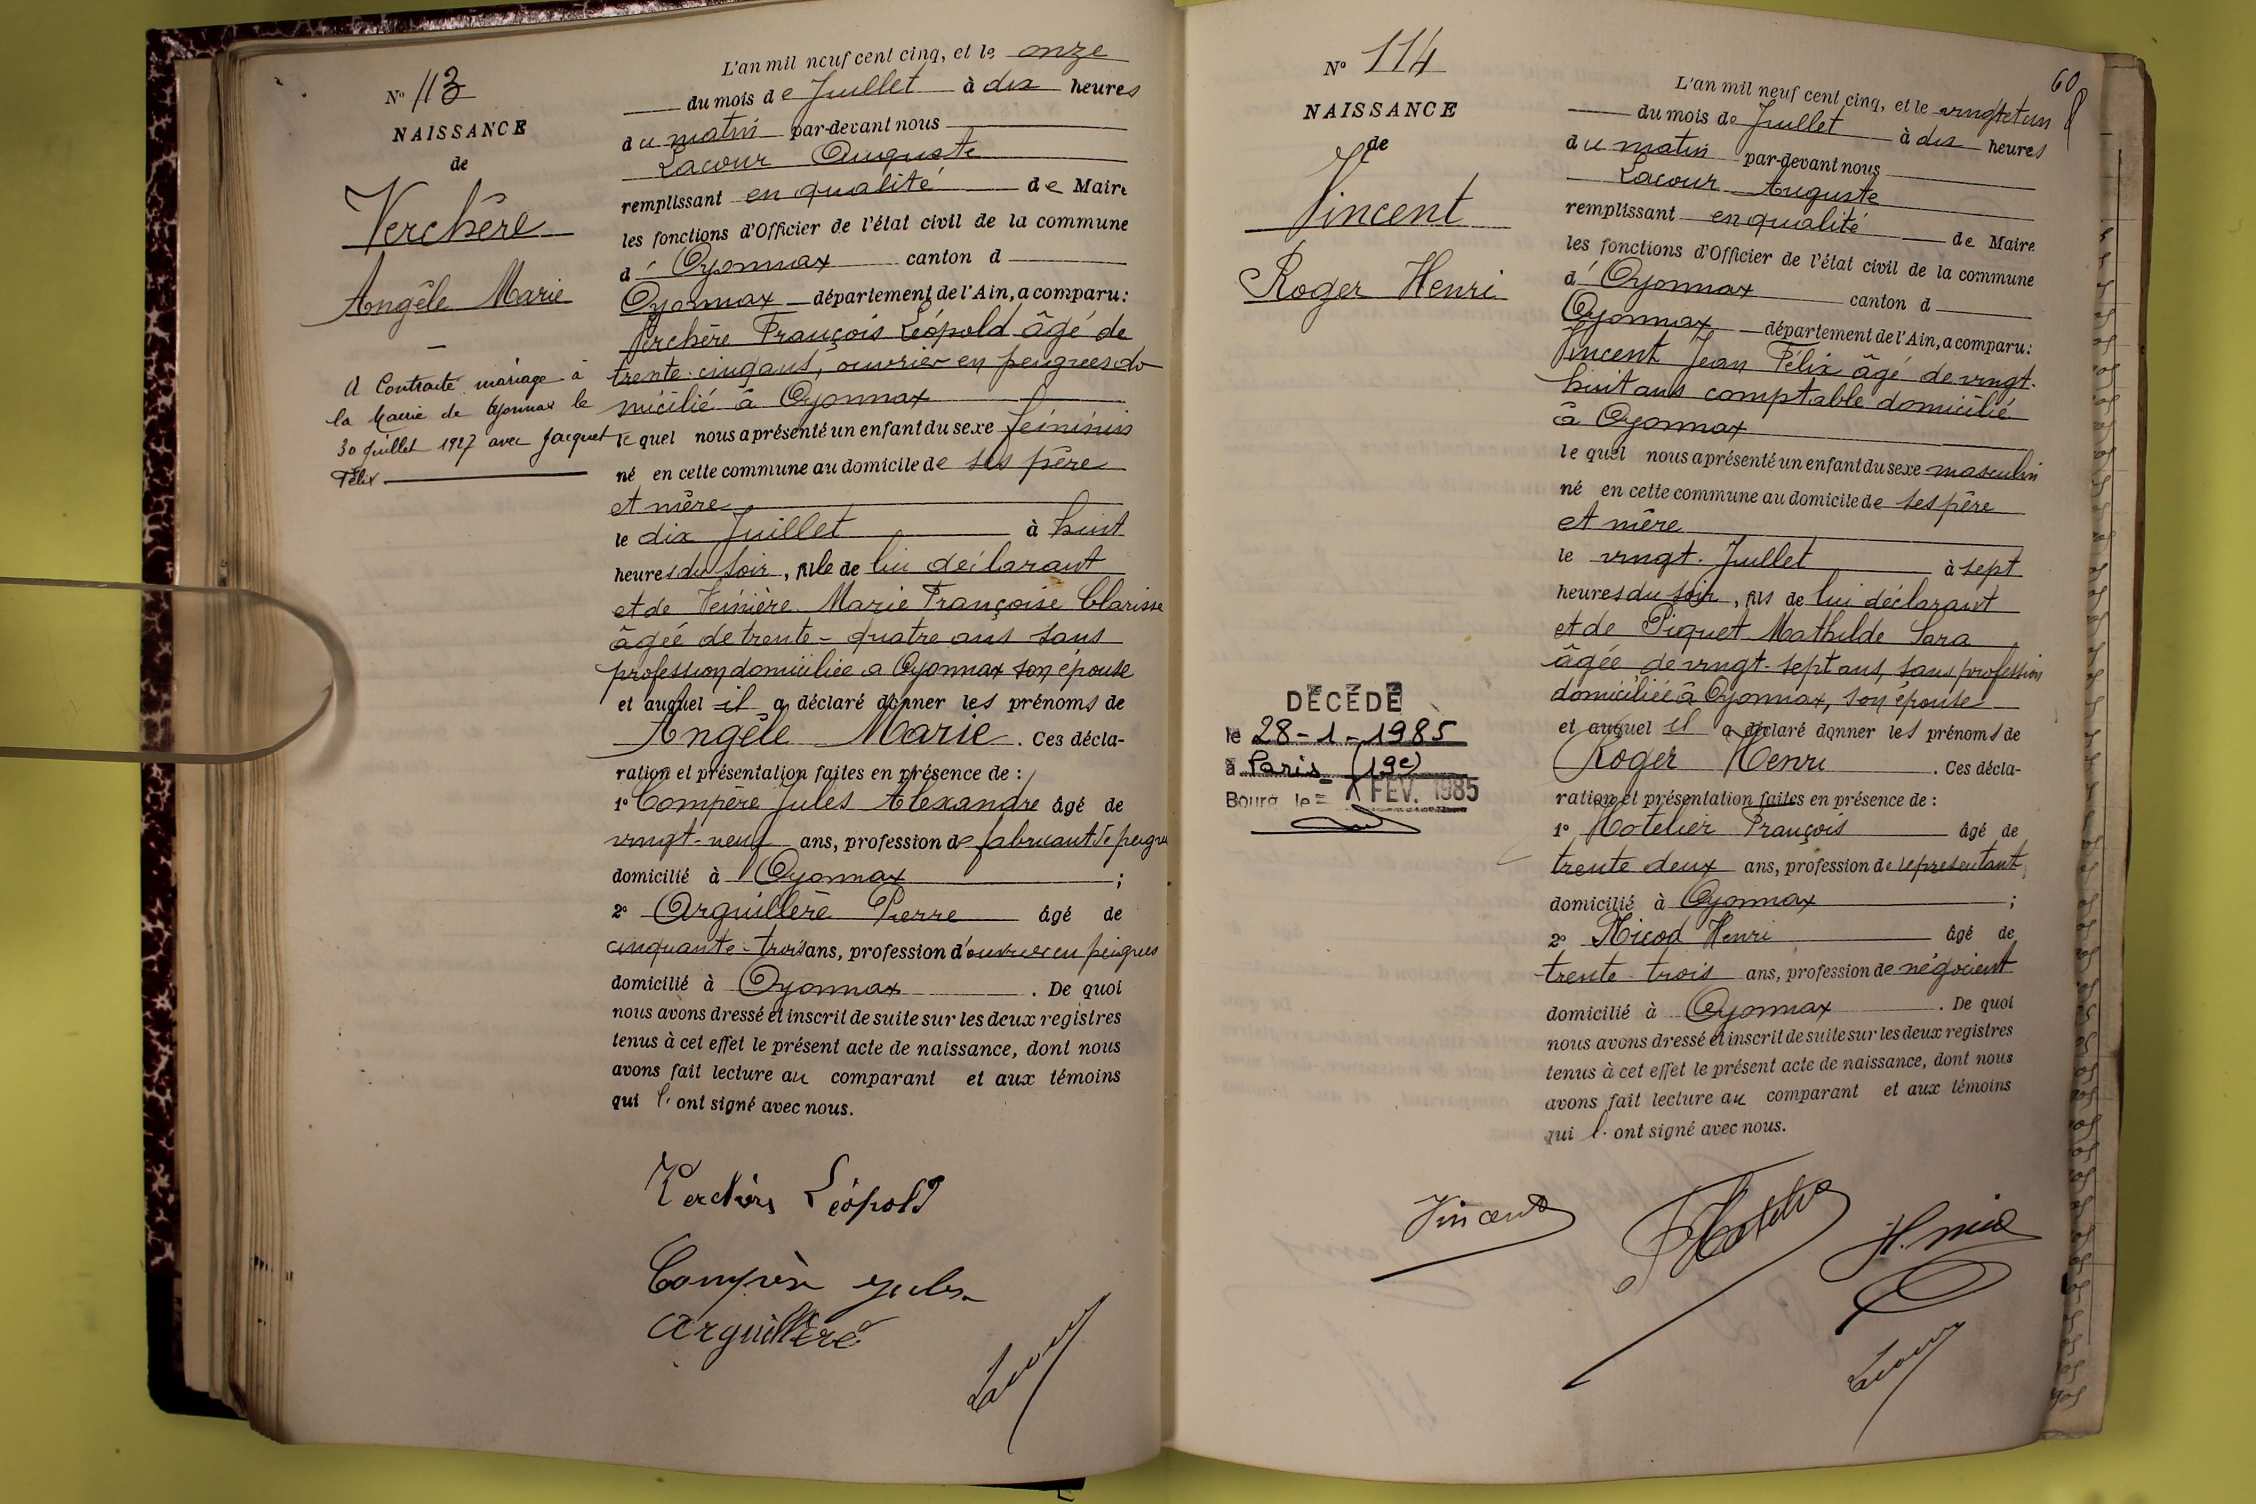 N° 113
NAISSANCE
de
Verchère
Angèle Marie
A Contracté mariage à
la Mairie de Oyonnax le
30 Juillet 1927 avec Jacquet
Félix
L'an mil neuf cent cinq, et le onze
du mois de Juillet à dix heures
du matin par-devant nous
Lacour Auguste
remplissant en qualité de Maire
les fonctions d'Officier de l'état civil de la commune
d' Oyonnax canton d
Oyonnax département de l'Ain, a comparu:
Verchère François Léopold âgé de
trente-cinq ans, ouvrier en peignes do
micilié à Oyonnax
le quel nous a présenté un enfant du sexe féminin
né en cette commune au domicile de ses père
et mère
le dix Juillet à huit
heures du soir, fille de lui déclarant
et de Marie Françoise Clarisse
âgée de trente-quatre ans sans
profession domiciliée à Oyonnax son épouse
et auquel il a déclaré donner les prénoms de
Angèle Marie. Ces décla-
ration et présentation faites en présence de:
1° Compère Jules Alexandre âgé de
vingt-neuf ans, profession de fabricant de peignes
domicilié à Oyonnax;
2° Arguillère Pierre âgé de
cinquante-trois ans, profession d'ouvrier en peignes
domicilié à Oyonnax. De quoi
nous avons dressé et inscrit de suite sur les deux registres
tenus à cet effet le présent acte de naissance, dont nous
avons fait lecture au comparant et aux témoins
qui l'ont signé avec nous.
Verchère Léopold
Compère Jules
Arguillère
Lacour
60
N° 114
NAISSANCE
de
Vincent
Roger Henri
DÉCÉDÉ
le 28-1-1985
à Paris (19e)
Bourg le FEV. 1985
L'an mil neuf cent cinq, et le vingt et un
du mois de Juillet à dix heures
du matin par-devant nous
Lacour Auguste
remplissant en qualité de Maire
les fonctions d'Officier de l'état civil de la commune
d' Oyonnax canton d
Oyonnax département de l'Ain, a comparu:
Vincent Jean Félix âgé de vingt-
huit ans comptable domicilié
à Oyonnax
le quel nous a présenté un enfant du sexe masculin
né en cette commune au domicile de ses père
et mère
le vingt Juillet à sept
heures du soir, fils de lui déclarant
et de Piquet Mathilde Sara
âgée de vingt-sept ans, sans profession
domiciliée à Oyonnax, son épouse
et auquel il a déclaré donner les prénoms de
Roger Henri. Ces décla-
ration et présentation faites en présence de:
1° Hotelier François âgé de
trente deux ans, profession de représentant
domicilié à Oyonnax;
2° Nicod Henri âgé de
trente-trois ans, profession de négociant
domicilié à Oyonnax. De quoi
nous avons dressé et inscrit de suite sur les deux registres
tenus à cet effet le présent acte de naissance, dont nous
avons fait lecture au comparant et aux témoins
qui l'ont signé avec nous.
Vincent
Lacour